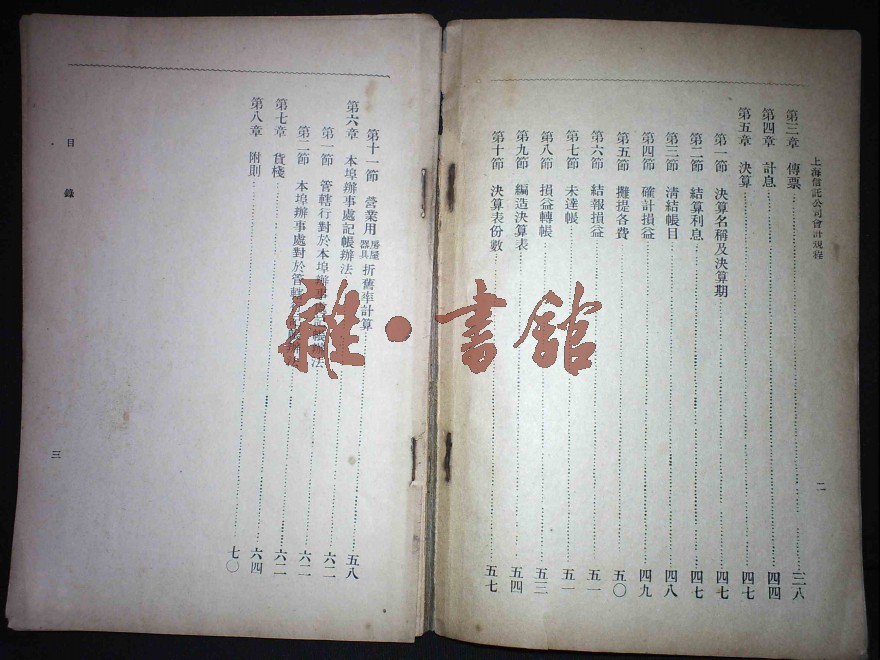 上海信託公司會計規程 二
第三章 傳票……三八
第四章 計息……四四
第五章 決算……四七
第一節 決算名稱及決算期……四七
第二節 結算利息……四七
第三節 清結帳目……四八
第四節 確計損益……四九
第五節 攤提各費……五〇
第六節 結報損益……五一
第七節 未達帳……五一
第八節 損益轉帳……五三
第九節 編造決算表……五四
第十節 決算表份數……五七
第十一節 營業用房屋器具折舊率計算……五八
第六章 本埠辦事處記帳辦法……六二
第一節 管轄行對於本埠辦事帳辦法……六二
第二節 本埠辦事處對於管轄……六二
第七章 貨棧……六四
第八章 附則……七〇
目錄 三
雜·書館